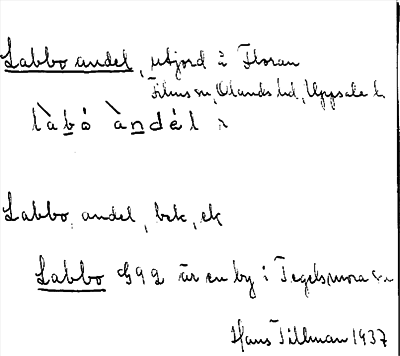 Labbo andel, utjord i Floran
Films sn, Olands hd, Uppsala l.
làbó àndél
Labbo, andel, bek, ek
Labbo 992 är en by i Tegelsmora sn
Hans Tillman 1937